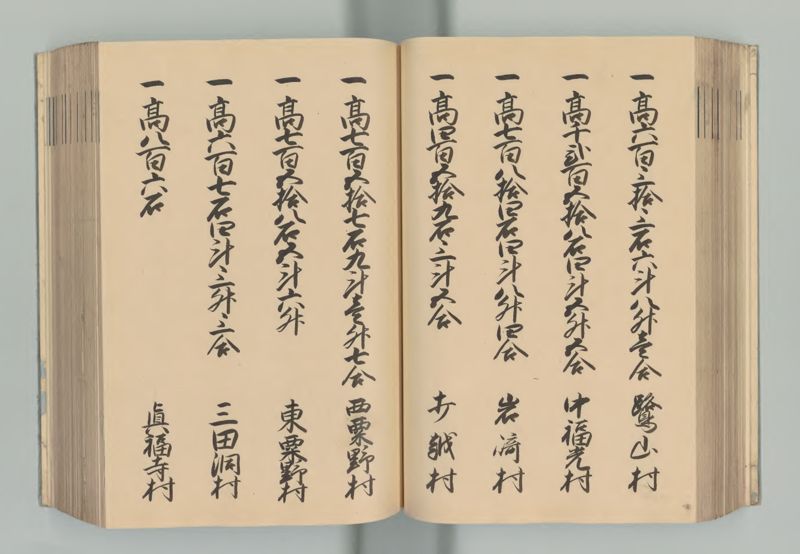 一高六百三拾三石六斗八升壱合 鷺山村
一高千弐百五拾八石四斗五升五合 中福光村
一高七百八拾四石四斗八升四合 岩崎村
一高四百五拾九石三斗五合 打越村
一高七百五拾七石九斗壱升七合 西粟野村
一高七百五拾八石五斗六升 東粟野村
一高六百七石四斗三升三合 三田洞村
一高八百六石 眞福寺村